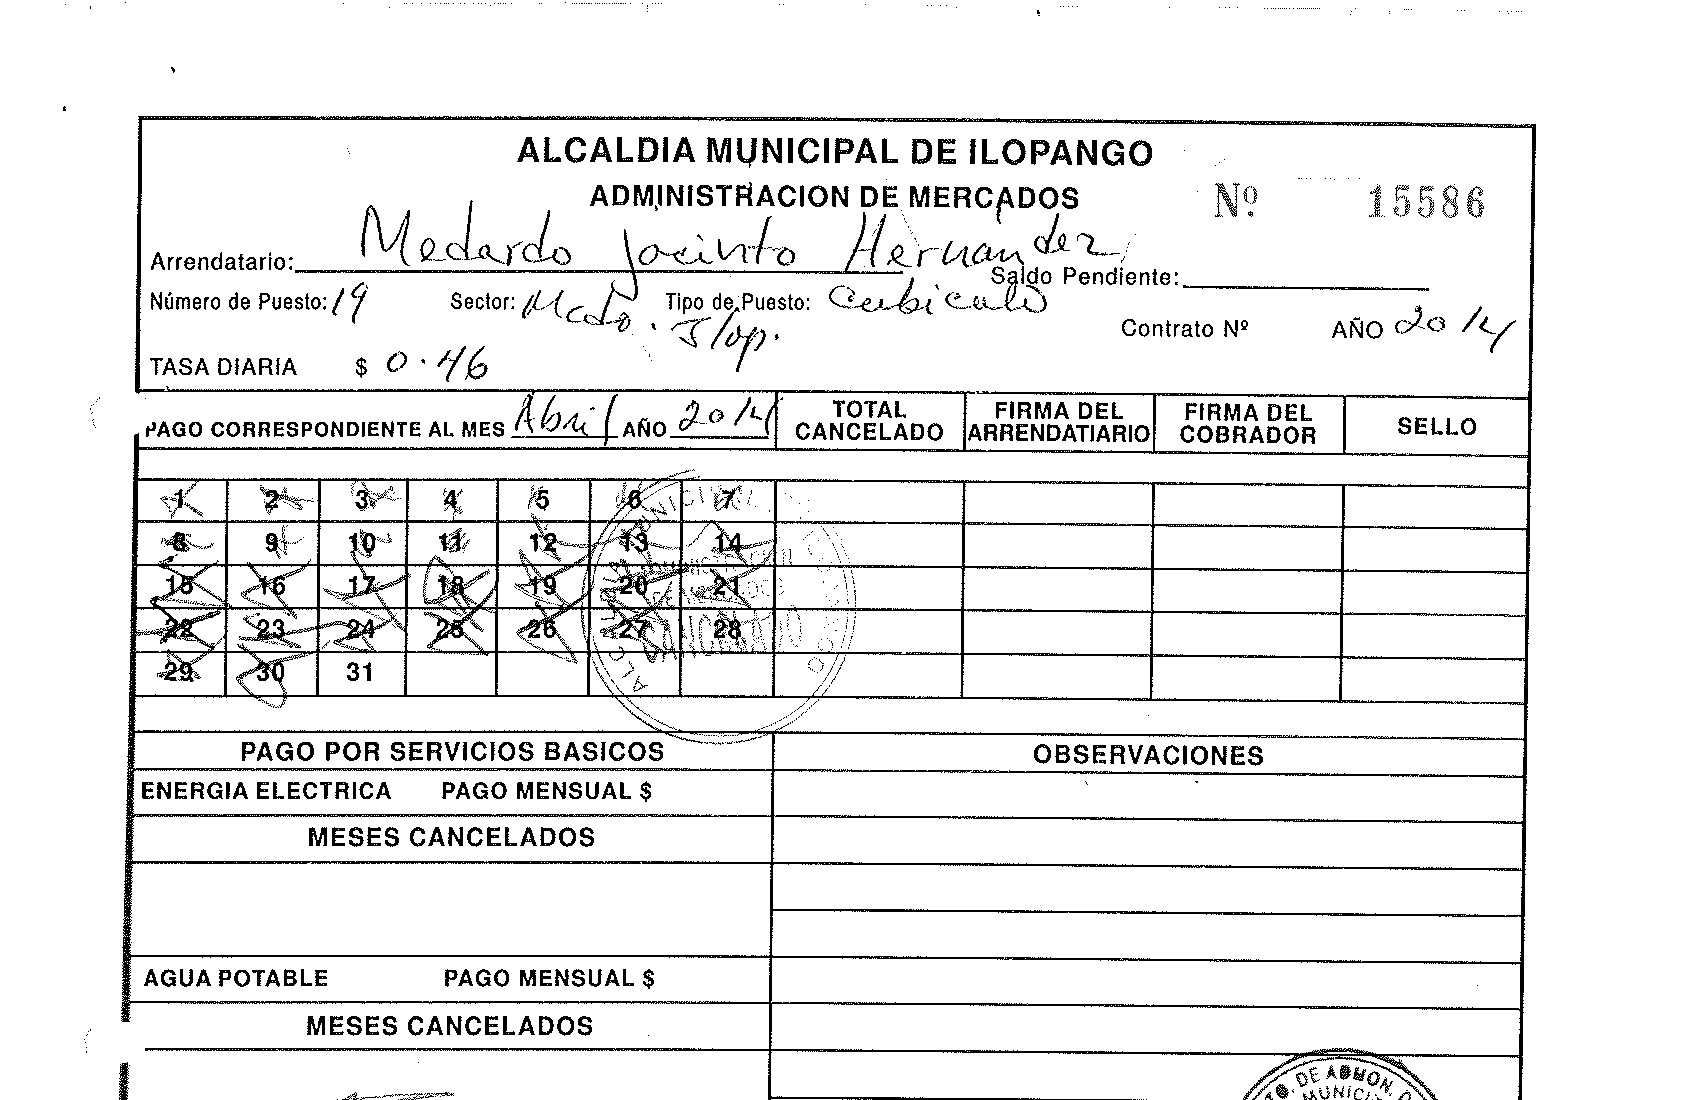 ALCALDIA MUNICIPAL DE ILOPANGO
ADMINISTRACION DE MERCADOS
Nº 15586
Arrendatario: Medardo Jacinto Hernandez
Saldo Pendiente:
Número de Puesto: 19 Sector: Mcdo. Ilop. Tipo de Puesto: Cubiculo
Contrato Nº AÑO 2014
TASA DIARIA $ 0.46
PAGO CORRESPONDIENTE AL MES Abril AÑO 2014 TOTAL CANCELADO FIRMA DEL ARRENDATIARIO FIRMA DEL COBRADOR SELLO
1 2 3 4 5 6 7
8 9 10 11 12 13 14
15 16 17 18 19 20 21
22 23 24 25 26 27 28
29 30 31
CANCELADO
PAGO POR SERVICIOS BASICOS OBSERVACIONES
ENERGIA ELECTRICA PAGO MENSUAL $
MESES CANCELADOS
AGUA POTABLE PAGO MENSUAL $
MESES CANCELADOS
DE ADMON.
MUNICI